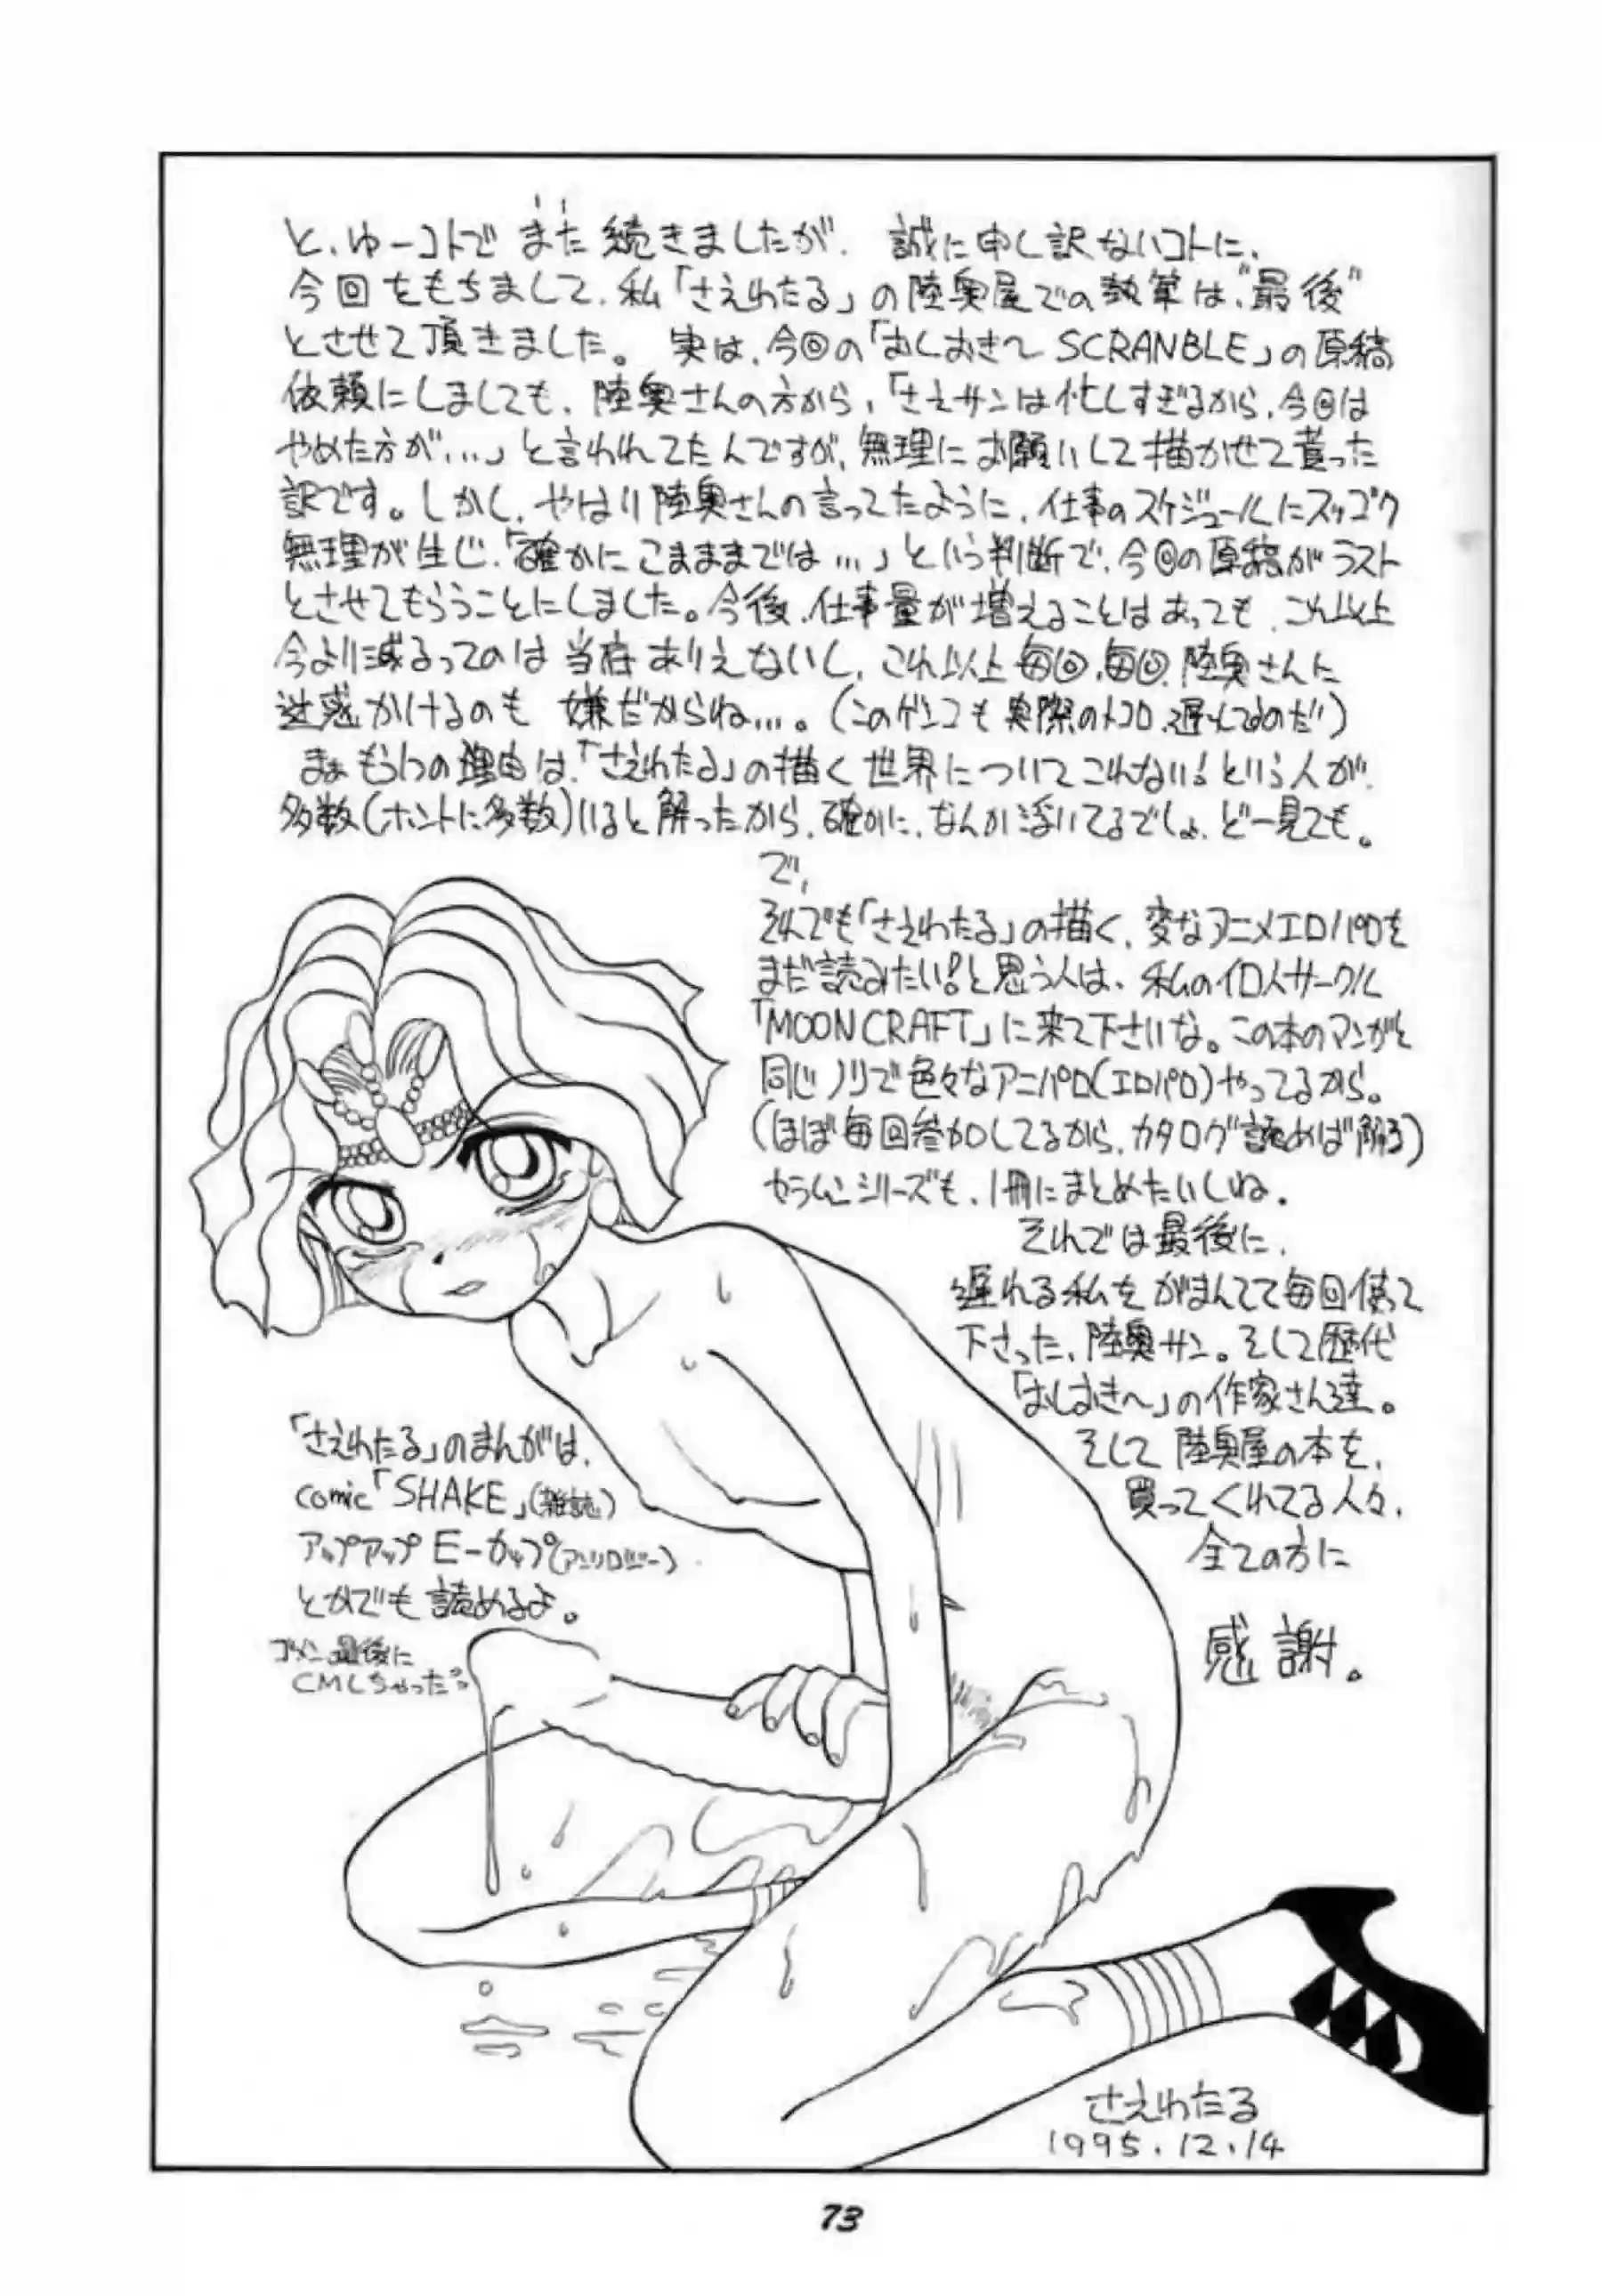 と、ゆーコトで また 続きましたが、 誠に申し訳ないコトに、
今回をもちまして、私「さえわたる」の陸奥屋での執筆は、"最後"
とさせて頂きました。 実は、今回の「おしおき〜 SCRANBLE」の原稿
依頼にしましても、陸奥さんの方から、「さえサンは忙しすぎるから、今回は
やめた方が…」と言われてたんですが、無理にお願いして描かせて貰った
訳です。しかし、やはり陸奥さんの言ってたように、仕事のスケジュールにスッゴク
無理が生じ、「確かにこまままでは…」という判断で、今回の原稿がラスト
とさせてもらうことにしました。今後、仕事量が増えることはあっても、これ以上
今より減るってのは当在ありえないし、これ以上毎回、毎回、陸奥さんに
迷惑かけるのも 嫌だからね…。(このゲンコも実際のトコロ、遅れてるのだ!)
まぁもう1つの理由は、「さえわたる」の描く世界についてこれない!という人が、
多数(ホントに多数)いると解ったから、確かに、なんか浮いてるでしょ、どー見ても。
で、
それでも「さえわたる」の描く、変なアニメエロパロを
まだ読みたい!と思う人は、私のイロ人サークル
「MOON CRAFT」に来て下さいな。この本のマンガと
同じノリで色々なアニパロ(エロパロ)やってるから。
(ほぼ毎回参加してるから、カタログ読めば解る)
セラムンシリーズも、1冊にまとめたいしね。
それでは最後に、
遅れる私をがまんてて毎回使って
下さった、陸奥サン。そして歴代
「おしおき〜」の作家さん達。
そして 陸奥屋の本を、
買ってくれてる人々、
全ての方に
感謝。
「さえわたる」のまんがは、
comic「SHAKE」(雑誌)
アップアップ E−カップ(アンソロジー)
とかでも読めるよ。
ゴメン、最後に
CMしちゃった
さえわたる
1995.12.14
73